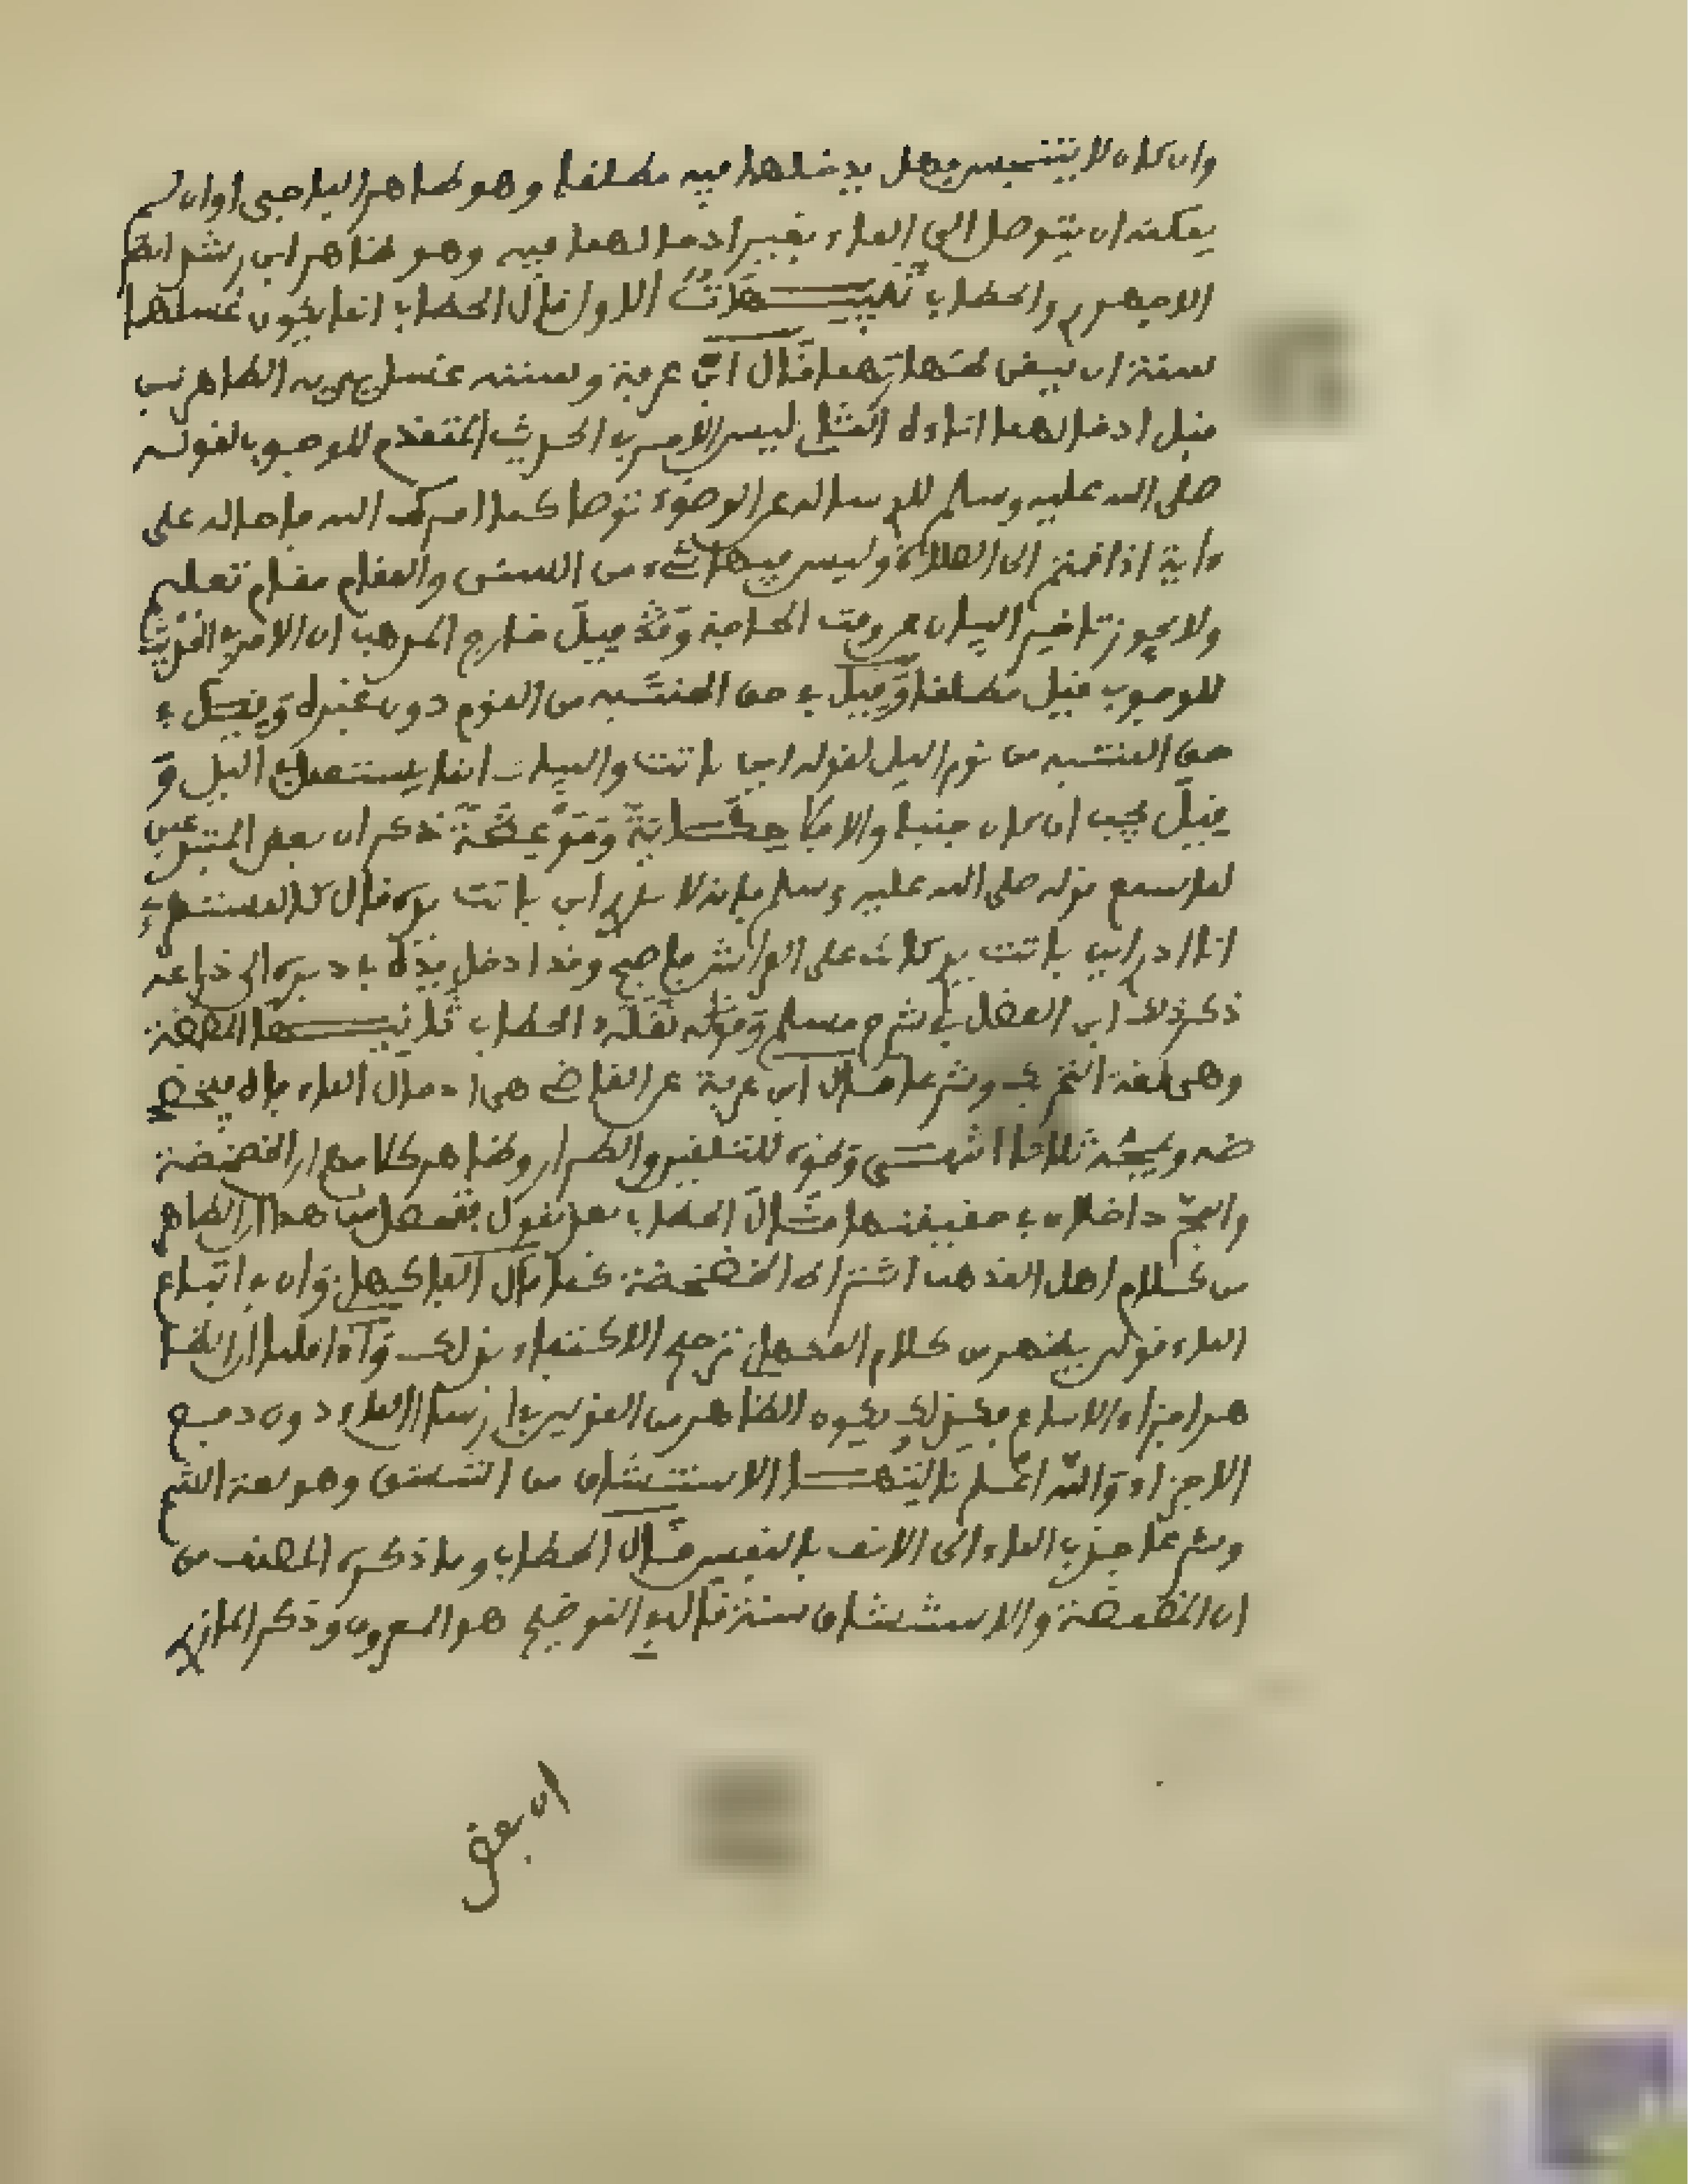 وان كان لا يتنجس فهل يدخلهما فيه مطلقا وهو ظاهر الباجي او ان لم
يمكنه ان يتوصل الى الماء بغير ادخالهما فيه وهو ظاهر ابن رشد انظر
الاجهوري والحطاب تنبيهات الاول قال الحطاب انما يكون غسلهما
سنة ان تيقن طهارتهما قال ابن عرفة وسننه غسل يديه الطاهرتين
قبل ادخالهما اناءه الثاني ليس الامر في الحديث المتقدم للوجوب لقوله
صلى الله عليه وسلم للذي ساله عن الوضوء توضا كما امرك الله فاحاله على
ءاية اذا قمتم الى الصلاة وليس فيها شيء من السنن والمقام مقام تعليم
ولا يجوز تاخير البيان عن وقت الحاجة وقد قيل خارج المذهب ان الامر في الحديث
للوجوب قيل مطلقا وقيل في حق المنتبه من النوم دون غيره وقيل في
حق المنتبه من نوم اليل لقوله اين باتت والبيات انما يستعمل في اليل و
قيل يجب ان كان جنبا والا فلا حكاية وموعظة ذكر ان بعض المبتدعين
لما سمع قوله صلى الله عليه وسلم فانه لا يدري اين باتت يده قال كالمستهزئ
انا ادري اين باتت يدي كانت على الفراش فاصبح وقد ادخل يده في دبره الى ذراعه
ذكر ذلك ابن الفضل في شرح مسلم وقوله نقله الحطاب ثانيها المضمضة
وهي لغة التحريك وشرعا قال ابن عرفة عن القاضي هي ادخال الماء فاه فيخضخ
ضه ويمجه ثلاثا انتهى وقوله للتلقين والطراز وظاهر كلامهم ان الخضخضة
والمج داخلان في حقيقتها قال الحطاب بعد نقول فتحصل من هذا ان الظاهر
من كلام اهل المذهب اشتراط الخضخضة كما قال الفاكهاني وان في ابتلاع
الماء قولين يظهر من كلام الفاكهاني ترجيح الاكتفاء بذلك واذا قلنا ان الظا
هر اجزاء الابتلاع فكذلك يكون الظاهر من القولين في ارسال الماء دون دفع
الاجزاء والله اعلم ثالثها الاستنشاق من التنشق وهو لغة الشم
وشرعا جذب الماء الى الانف بالنفس قال الحطاب وما ذكره المصنف من
ان المضمضة والاستنشاق سنة قال في التوضيح هو المعروف وذكر المازري
ان بعض